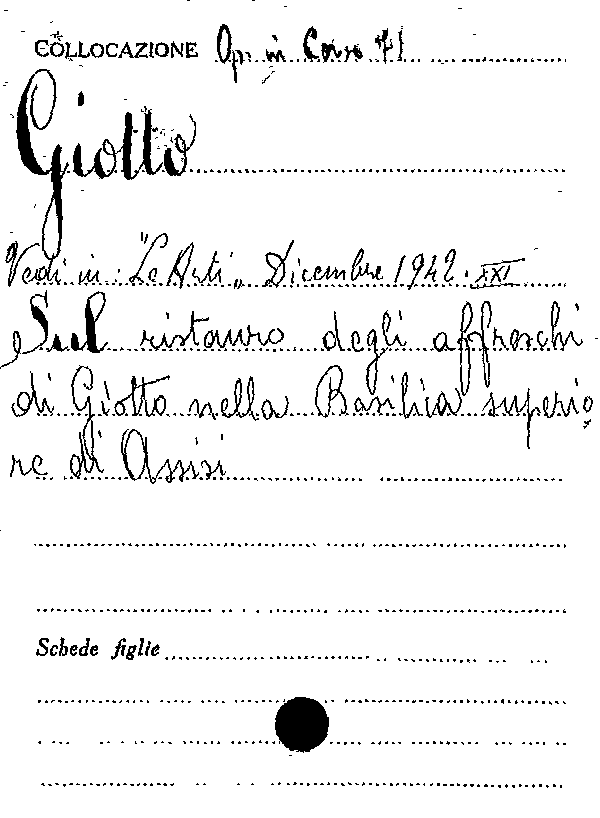 COLLOCAZIONE Op. in Corso 71
Giotto
Vedi in "Le Arti" Dicembre 1942. XXI
Sul ristauro degli affreschi
di Giotto nella Basilica superio
re di Assisi
Schede figlie